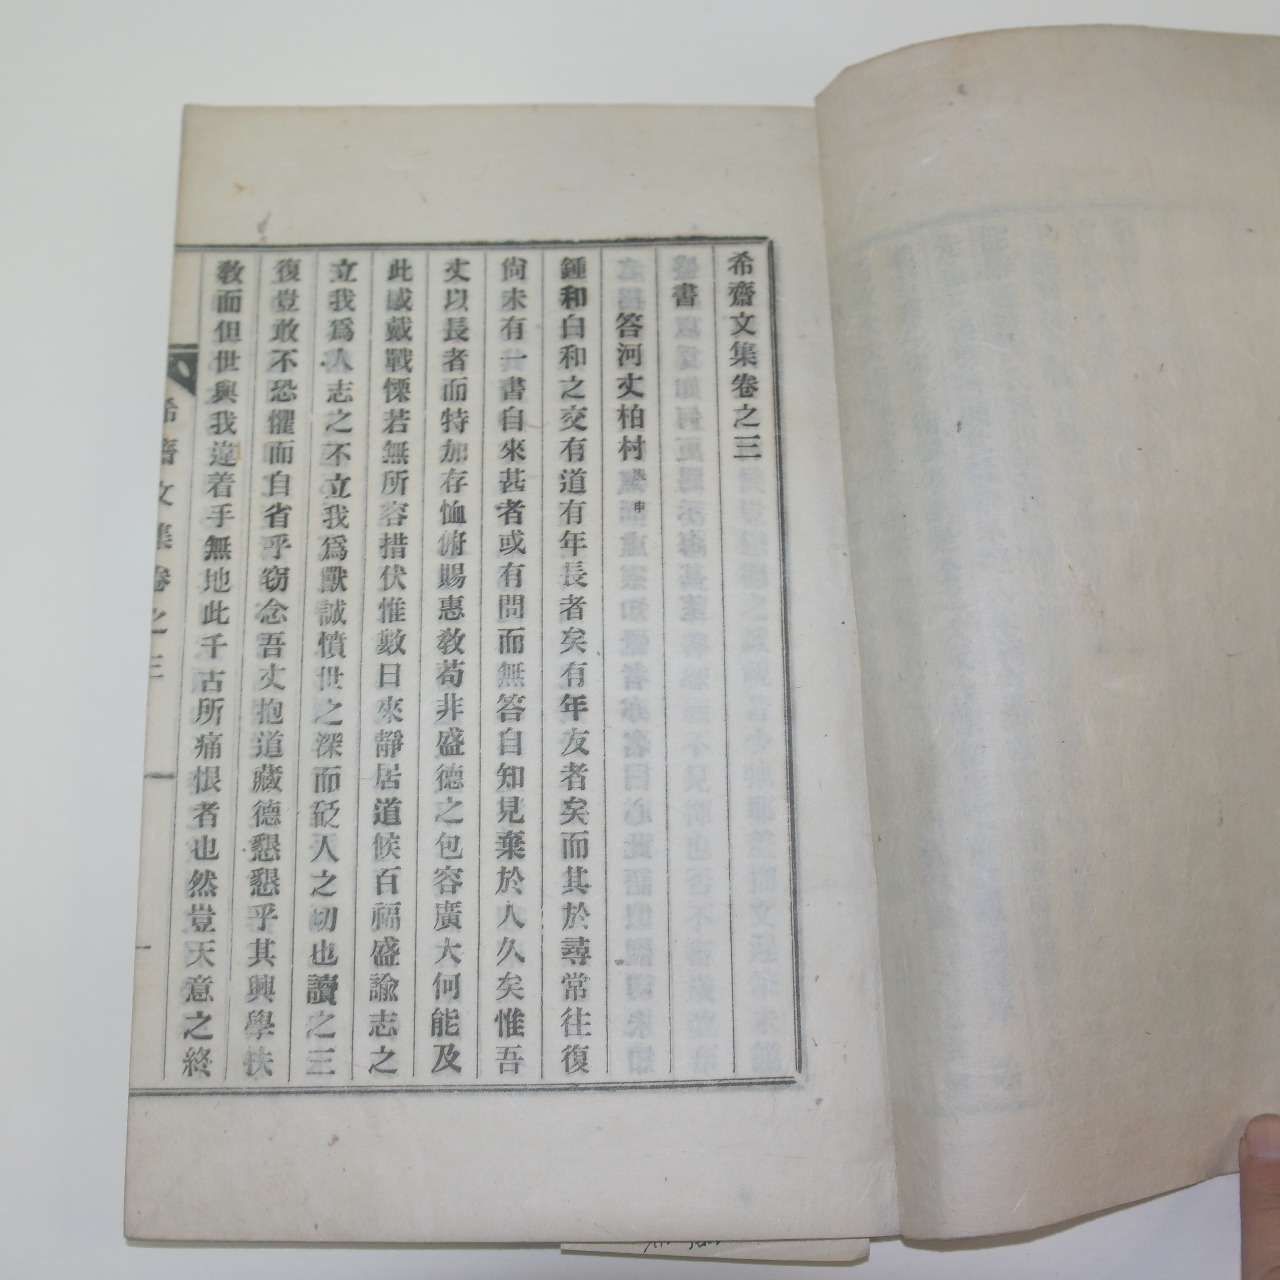 希齋文集卷之三
書
答河丈柏村 申
鍾和白和之交有道有年長者矣有年友者矣而其於尋常往復
尙未有一書自來甚者或有問而無答自知見棄於人久矣惟吾
丈以長者而特加存恤俯賜惠敎苟非盛德之包容廣大何能及
此感戴戰慄若無所容措伏惟數日來靜居道候百福盛諭志之
立我爲人志之不立我爲獸誠憤世之深而砭人之切也讀之三
復豈敢不恐懼而自省乎窃念吾丈抱道藏德懇懇乎其興學扶
敎而但世與我違着手無地此千古所痛恨者也然豈天意之終
希齋文集卷之三
一